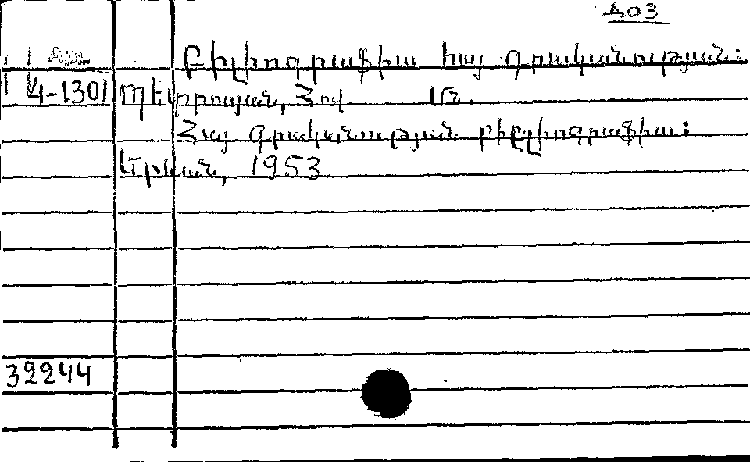 Ճ03
Բիբլիոգրաֆիա հայ գրականության:
4-1301 Պետրոսյան, Հով.
Հայ գրականության բիբլիոգրաֆիա:
Երևան, 1953
32244